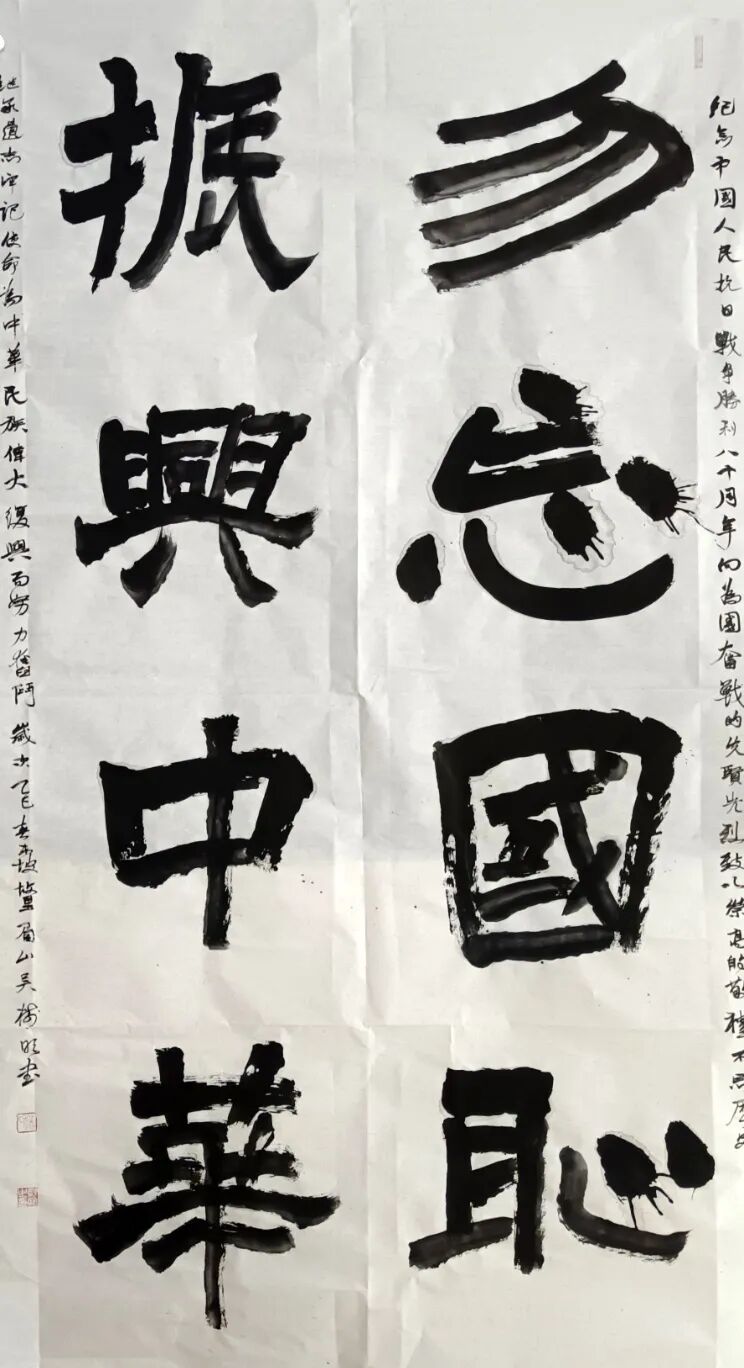 纪念中國人民抗日戰争勝利八十周年向為國奋戰的先賢先烈致以崇高的敬禮不忘歷史
勿忘國恥
振興中華
继承遺志牢记使命為中華民族偉大復興而努力奮鬥 歲次乙巳春東坡故里眉山吴